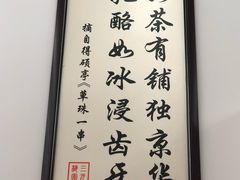 茶有铺独京华
酪如冰浸齿牙
摘自得硕亭《草珠一串》